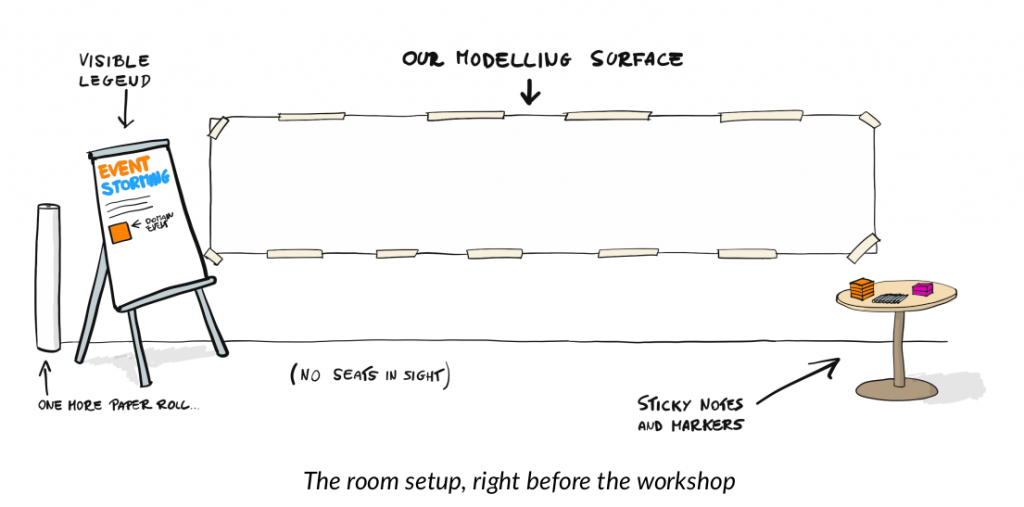 VISIBLE
LEGEND
OUR MODELLING SURFACE
EVENT
STORMING
DOMAIN
EVENT
(NO SEATS IN SIGHT)
ONE MORE PAPER ROLL...
STICKY NOTES
AND MARKERS
The room setup, right before the workshop